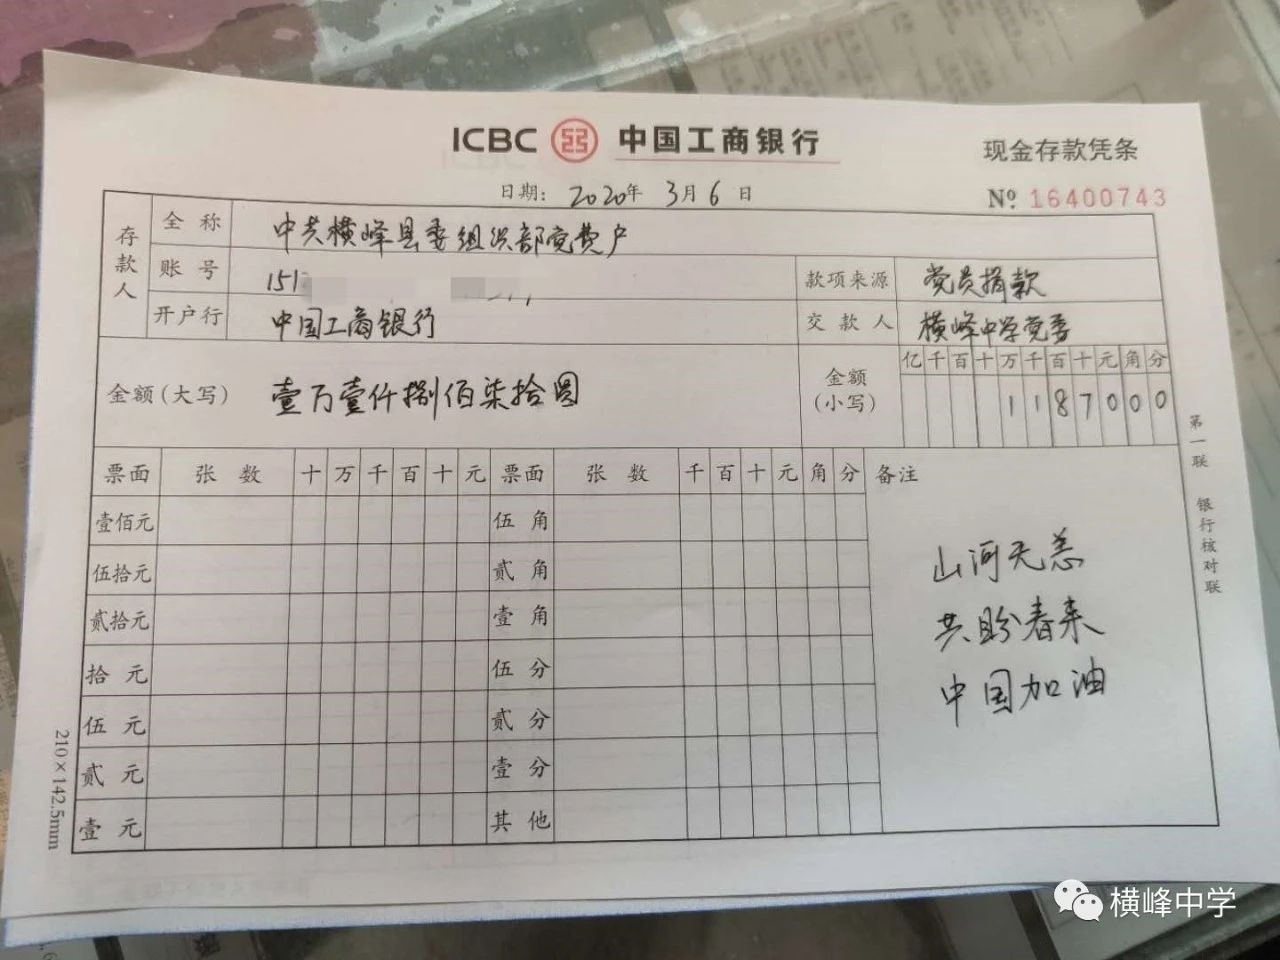 ICBC 中国工商银行
现金存款凭条
日期: 2020年 3月 6日
№ 16400743
存款人
全 称 中共横峰县委组织部党费户
账 号 151
款项来源 党员捐款
开户行 中国工商银行
交 款 人 横峰中学党委
金额(大写) 壹万壹仟捌佰柒拾圆
金额(小写)
亿 千 百 十 万 千 百 十 元 角 分
1 1 8 7 0 0 0
票面 张 数 十 万 千 百 十 元 票面 张 数 千 百 十 元 角 分 备注
壹佰元 伍 角
伍拾元 贰 角
贰拾元 壹 角
拾 元 伍 分
伍 元 贰 分
贰 元 壹 分
壹 元 其 他
山河无恙
共盼春来
中国加油
第一联 银行核对联
210×142.5mm
横峰中学